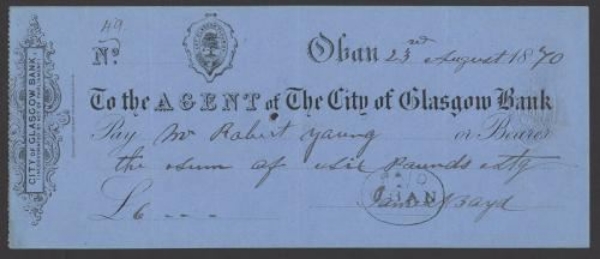 49
Nº
Oban 23rd August 1870
To the AGENT of The City of Glasgow Bank
Pay Mr Robert Young or Bearer
the sum of six pounds Stg
£6 - - -
PAID
OBAN
James Boyd
CITY OF GLASGOW BANK
INCORPORATED BY ACT OF PARLIAMENT